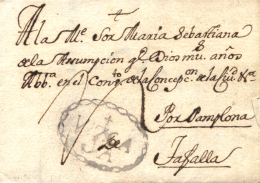 A la Me. Sor Maria Sebastiana
de la Assumpcion qe. Dios ms. años
Abba. en el Conto. de la Concepcon. de la Ciud. Ra.
Por Pamplona
De
Tafalla